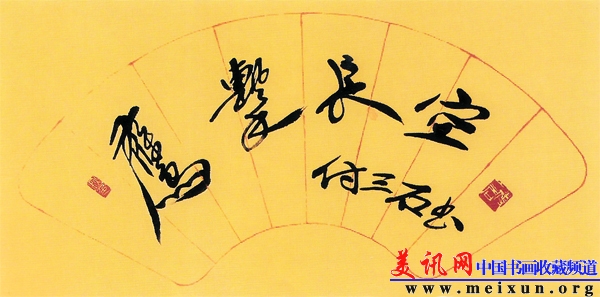 鷹擊長空
付三石书
美讯网 中国书画收藏频道
www.meixun.org